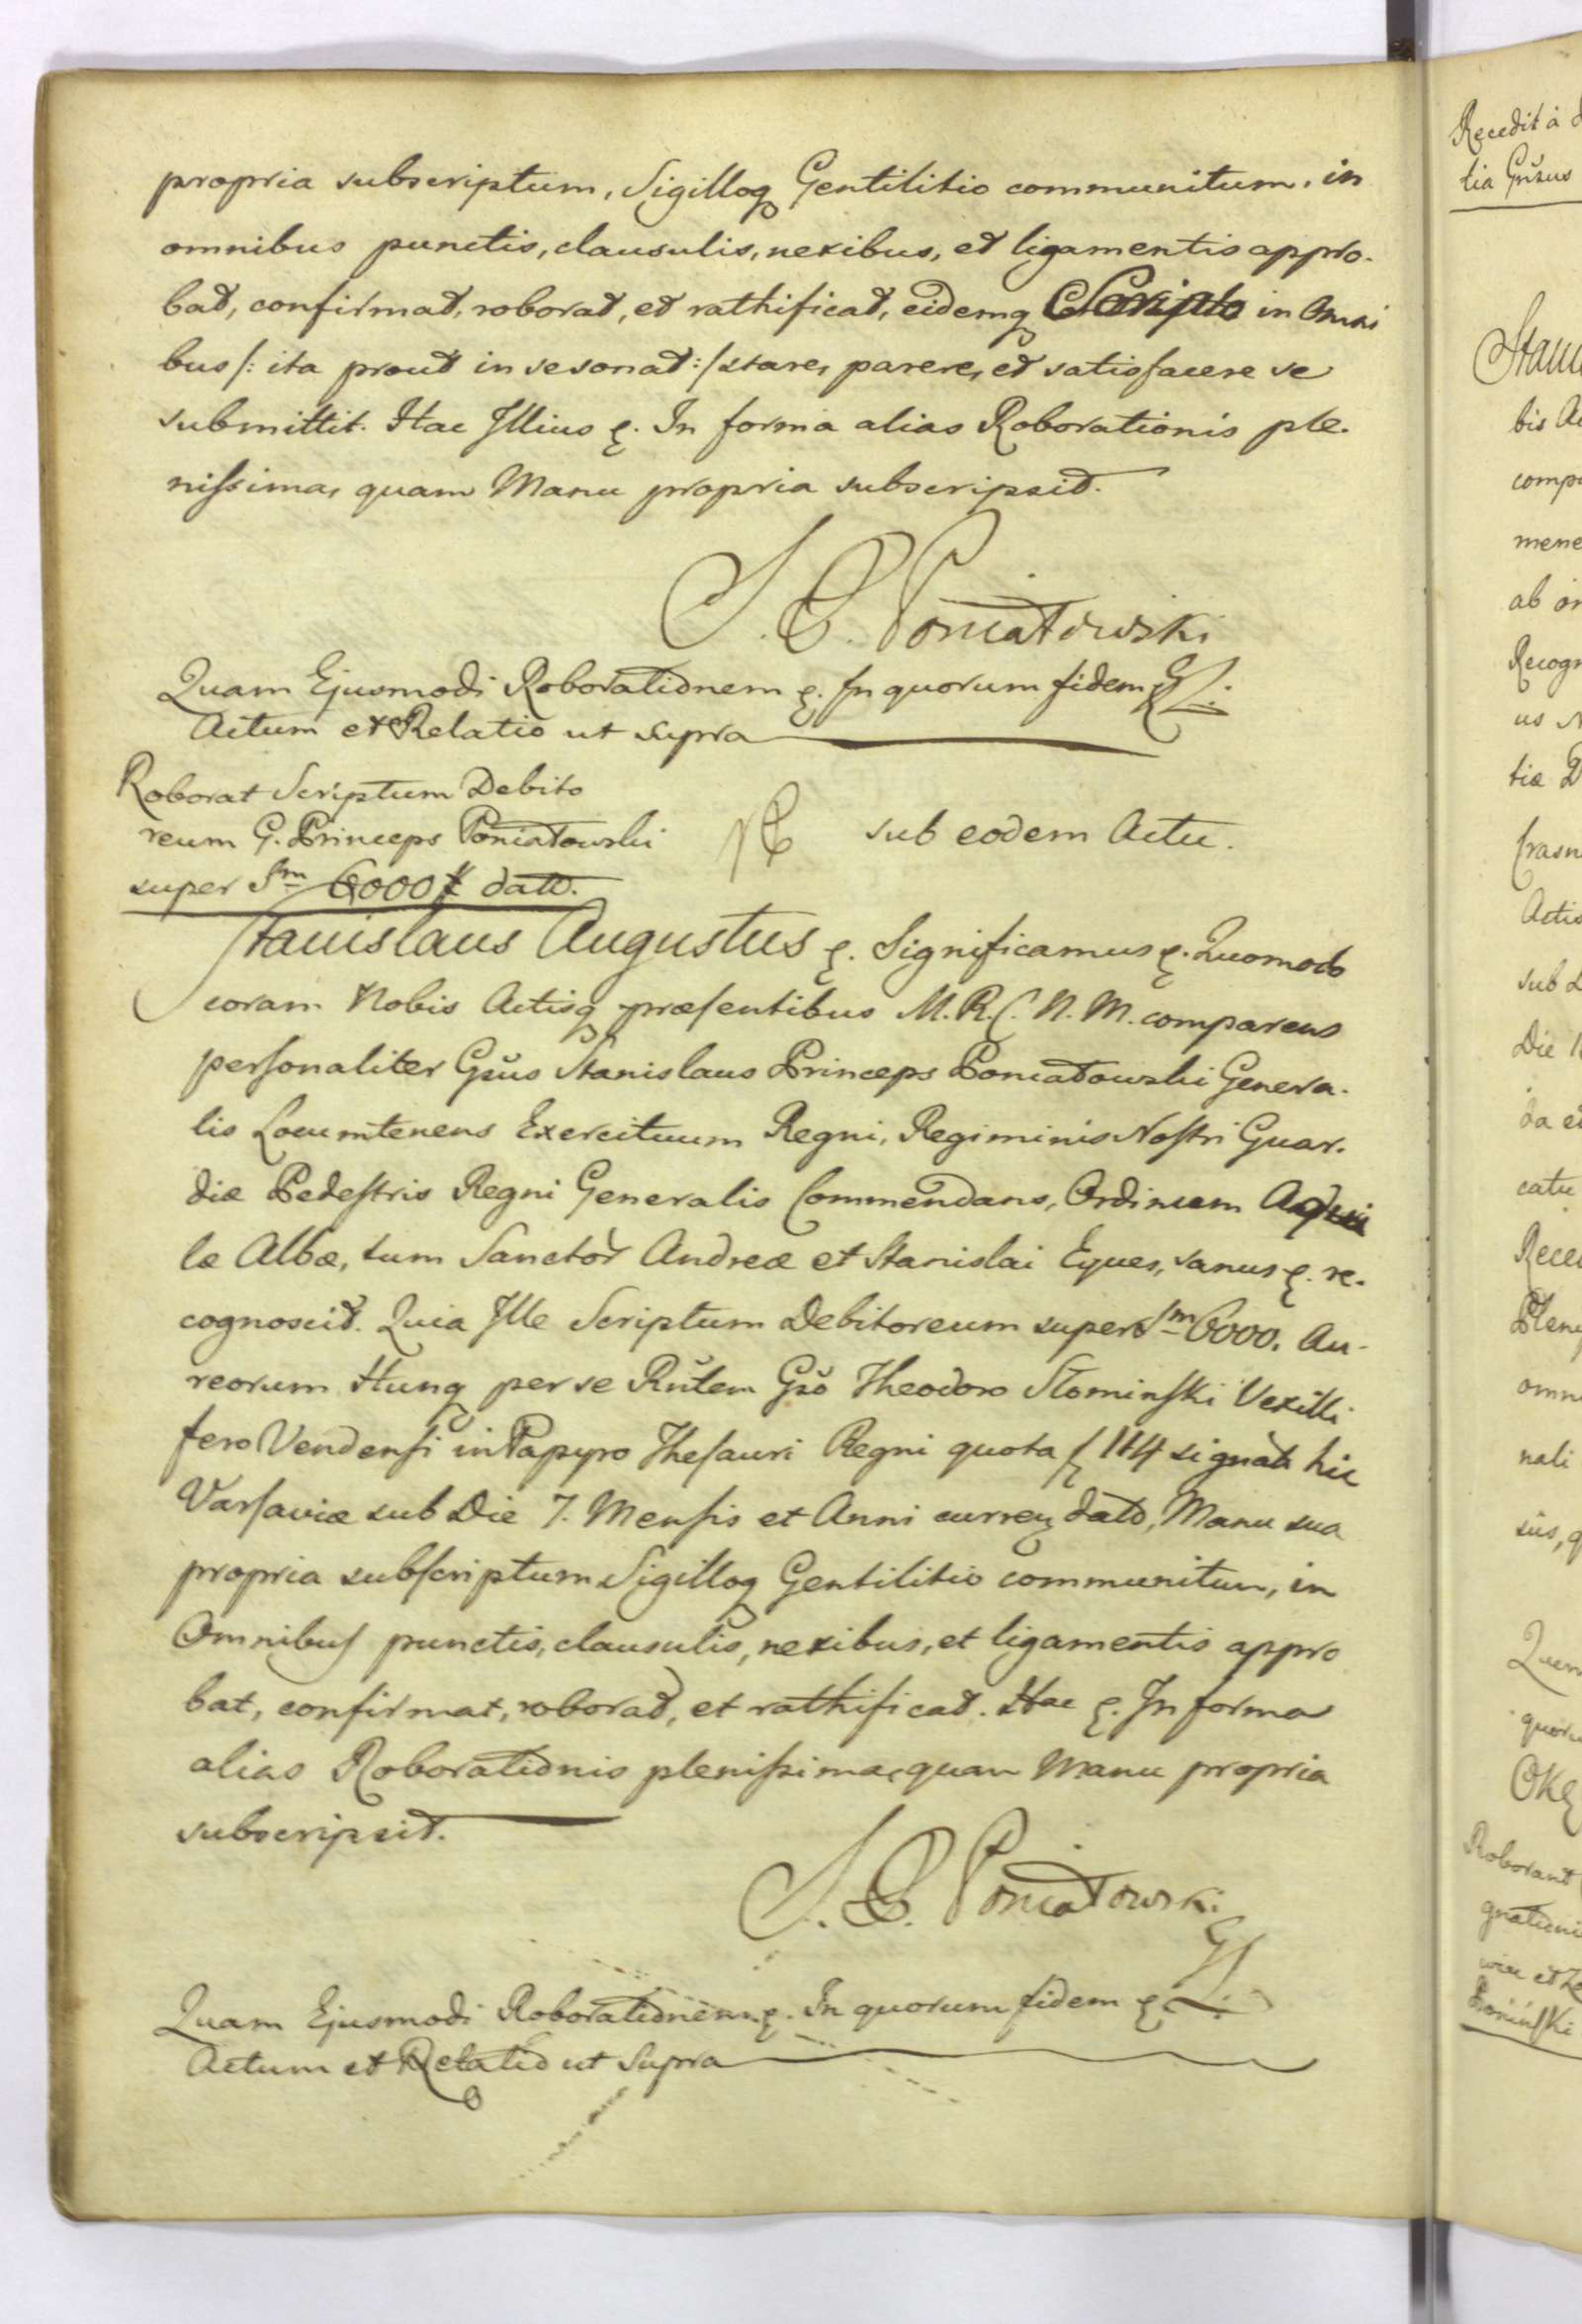 propria subscriptum, Sigilloq Gentilitio communitum, in
omnibus punctis, clausulis, nexibus, et ligamentis appro-
bat, confirmat, roborat, et rathificat, eidemq Scripto in Omni
bus /: ita prout in se sonat :/ stare, parere, et satisfacere se
submittit. Hac Illius ę. In forma alias Roborationis ple-
nissima, quam Manu propria subscripsit.
S. P. Poniatowski
Quam Ejusmodi Roborationem ę. In quorum fidem ę
Actum et Relatio ut supra
Roborat Scriptum Debito
reum G. Princeps Poniatowski
super Sm 6000 # dato.
sub eodem Actu.
Stanislaus Augustus ę. Significamus ę. Quomodo
coram Nobis Actisq præsentibus M. R. C. N. M. comparens
personaliter Gsŭs Stanislaus Princeps Poniatowski Genera-
lis Locumtenens Exercituum Regni, Regiminis Nostri Guar-
diæ Pedestris Regni Generalis Commendans, Ordinum Aqui
læ Albæ, tum Sanctor̀ Andreæ et Stanislai Eques, sanus ę. re-
cognoscit. Quia Ille Scriptum Debitoreum super Sm 6000. Au-
reorum Hung per se Rŭtem Gsŏ Theodoro Słominski Vexilli
fero Vendensi in Papyro Thesauri Regni quota f 114 signata hic
Varsaviæ sub Die 7. Mensis et Anni curren dato, Manu sua
propria subscriptum Sigilloq Gentilitio communitum, in
Omnibus punctis, clausulis, nexibus, et ligamentis appro
bat, confirmat, roborat, et rathificat. Hac ę. In forma
alias Roborationis plenissima, quam Manu propria
subscripsit.
S. P. Poniatowski
Quam Ejusmodi Roborationem ę. In quorum fidem ę
Actum et Relatio ut Supra
Recedit à
tia Gŭsus
bis
mene
ab
us
Actis
sub
Die
catu
nali
Roborant